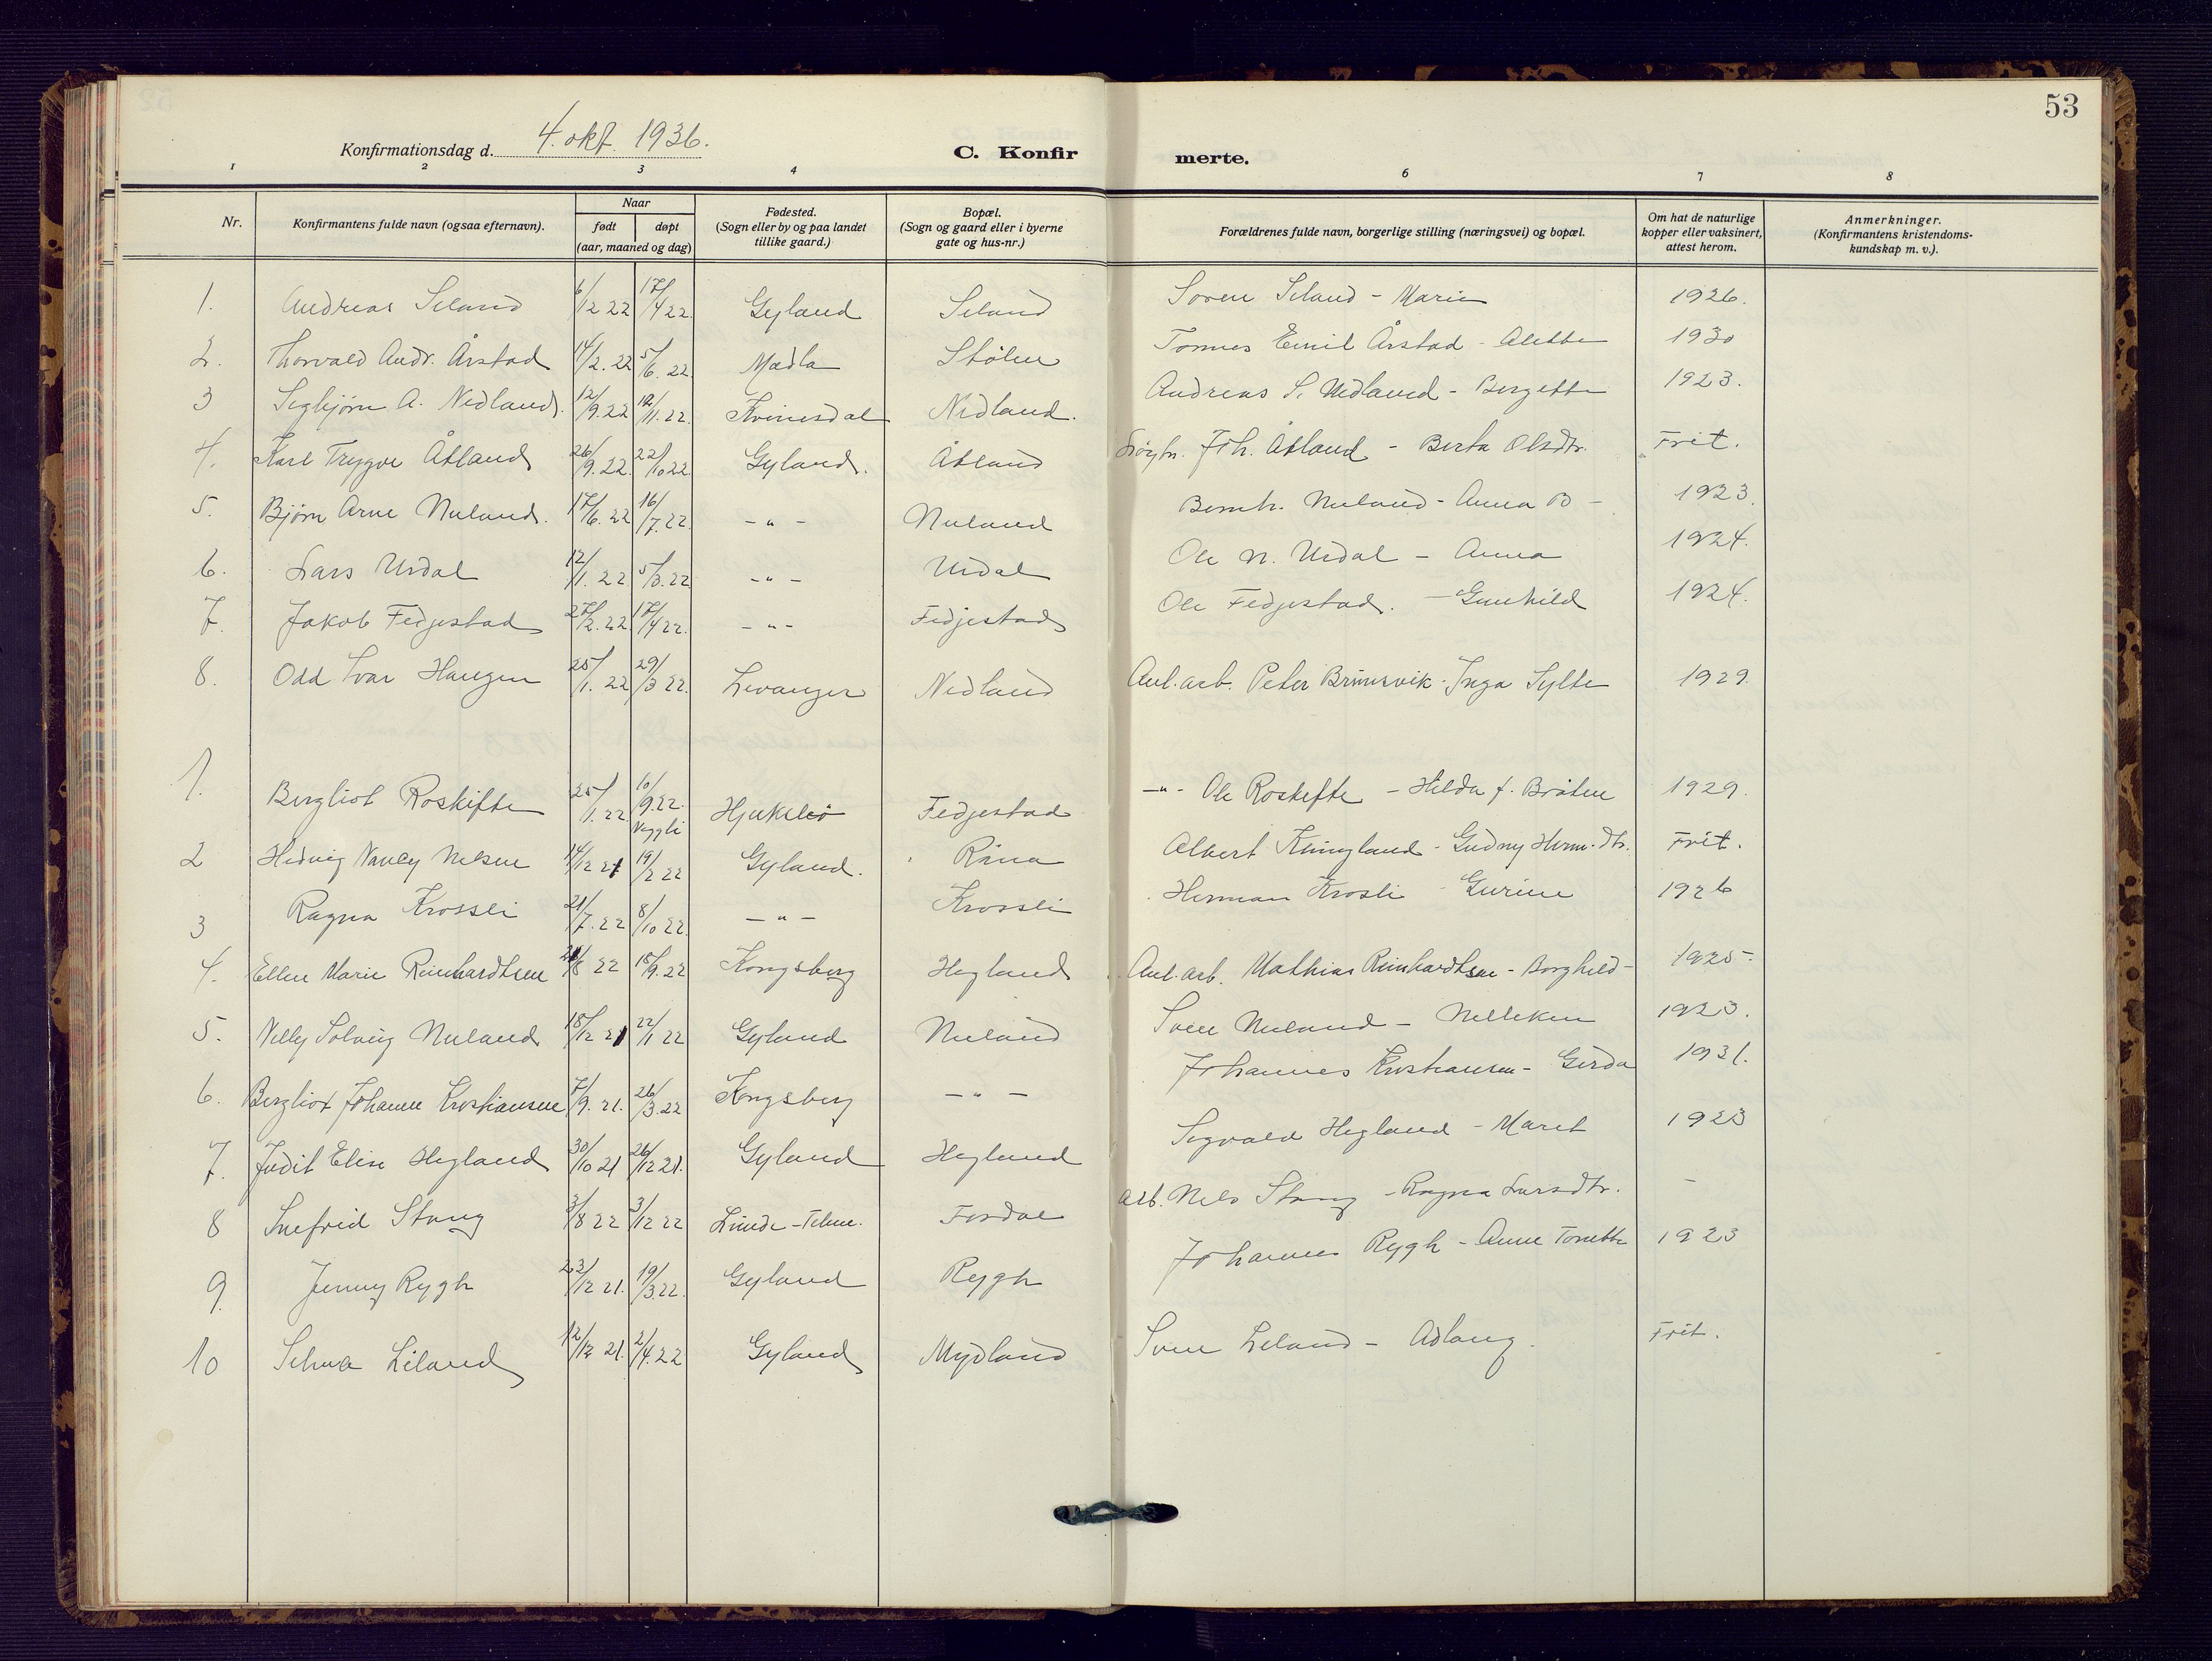 53
Konfirmationsdag d. 4. okt. 1936.
C. Konfirmerte.
1 2 3 4 6 7 8
Nr. Konfirmantens fulde navn (ogsaa efternavn). Naar født døpt (aar, maaned og dag) Fødested. (Sogn eller by og paa landet tillike gaard.) Bopæl. (Sogn og gaard eller i byerne gate og hus-nr.) Forældrenes fulde navn, borgerlige stilling (næringsvei) og bopæl. Om hat de naturlige kopper eller vaksinert, attest herom. Anmerkninger. (Konfirmantens kristendoms-kundskap m. v.).
1. Andreas Seland 6/12 22 17/4 22. Gyland Seland Soren Seland - Marie 1926.
2. Thorvald Andr. Årstad 14/2. 22 5/6. 22. Madla Stølen Tonnes Emil Årstad - Alette 1930
3 Segbjørn A. Nedland. 12/9. 22 12/11. 22. Kvinesdal Nedland. Andreas S. Nedland - Bergette 1923.
4. Karl Trygve Åtland 26/9. 22. 22/10 22. Gyland. Åtland Joh. Åtland - Berta Olsdtr. Frit.
5. Bjørn Arne Nuland. 17/6. 22 16/7. 22. -"- Nuland Bernh. Nuland - Anna B - 1923.
6. Lars Urdal 12/1. 22 5/3. 22 -"- Urdal Ole N. Urdal - Anna 1924.
7. Jakob Fedjestad 27/2. 22. 17/4 22. -"- Fedjestad Ole Fedjestad. - Gunhild 1924.
8. Odd Ivar Haugen 25/1. 22 29/3 22. Levanger Nedland Anl. arb. Peter Brunsvik - Inga Sylte 1929.
1. Bergliot Roskifte 25/1. 22. 10/9. 22. Veggli Fedjestad -"- Ole Roskefte - Hilda f. Bråten 1929.
2 Hedvig Nancy Nelsen 14/12 21 19/2 22 Gyland. Råna Albert - Gudny Herm. dtr. Frit.
3 Ragna Krossli 21/7. 22 8/10 22. -"- Krossli Herman Krosli - Gurine 1926
4. Ellen Marie Reinhardtsen 21/8 22 18/9. 22 Kongsberg Hegland Anl. arb. Mathias Reinhardtsen - Borghild - 1925.
5. Nelly Solveig Nuland 18/12 21 22/1 22 Gyland Nuland Sven Nuland - Nelleken 1923.
6. Bergliot Johanne Kristiansen 7/9. 21. 26/3. 22 Kongsberg -"- Johannes Kristiansen - Gerda 1931.
7. Judit Elise Hegland 30/10 21 26/12 21. Gyland Hegland Segvald Hegland - Marit 1923
8 Snefrid Stang 3/8 22 3/12 22 Lunde - Telem. Fosdal arb. Nels Stang - Ragna Larsdtr. -
9. Jenny Rygh 23/12 21. 19/3 22. Gyland Rygh Johannes Rygh - Anne Tonette 1923
10 Selma Liland 12/12 21. 2/4. 22 Gyland Mydland Sven Leland - Adlaug. Frit.